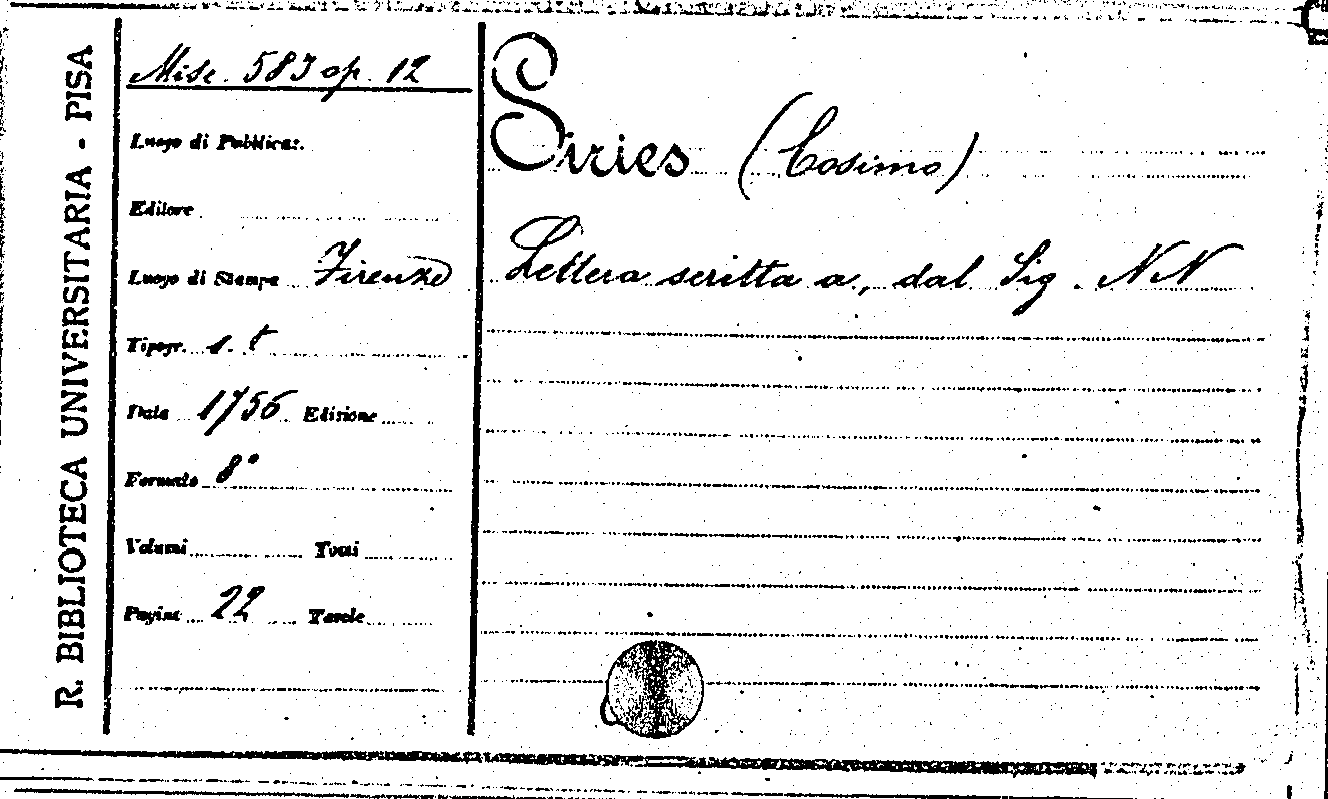 R. BIBLIOTECA UNIVERSITARIA - PISA
Misc. 583 op. 12
Luogo di Pubblicaz.
Editore
Luogo di Stampa Firenze
Tipogr. s. t
Data 1756 Edizione
Formato 8°
Volumi Tomi
Pagine 22 Tavole
Siries (Cosimo)
Lettera scritta a, dal Sig. NN